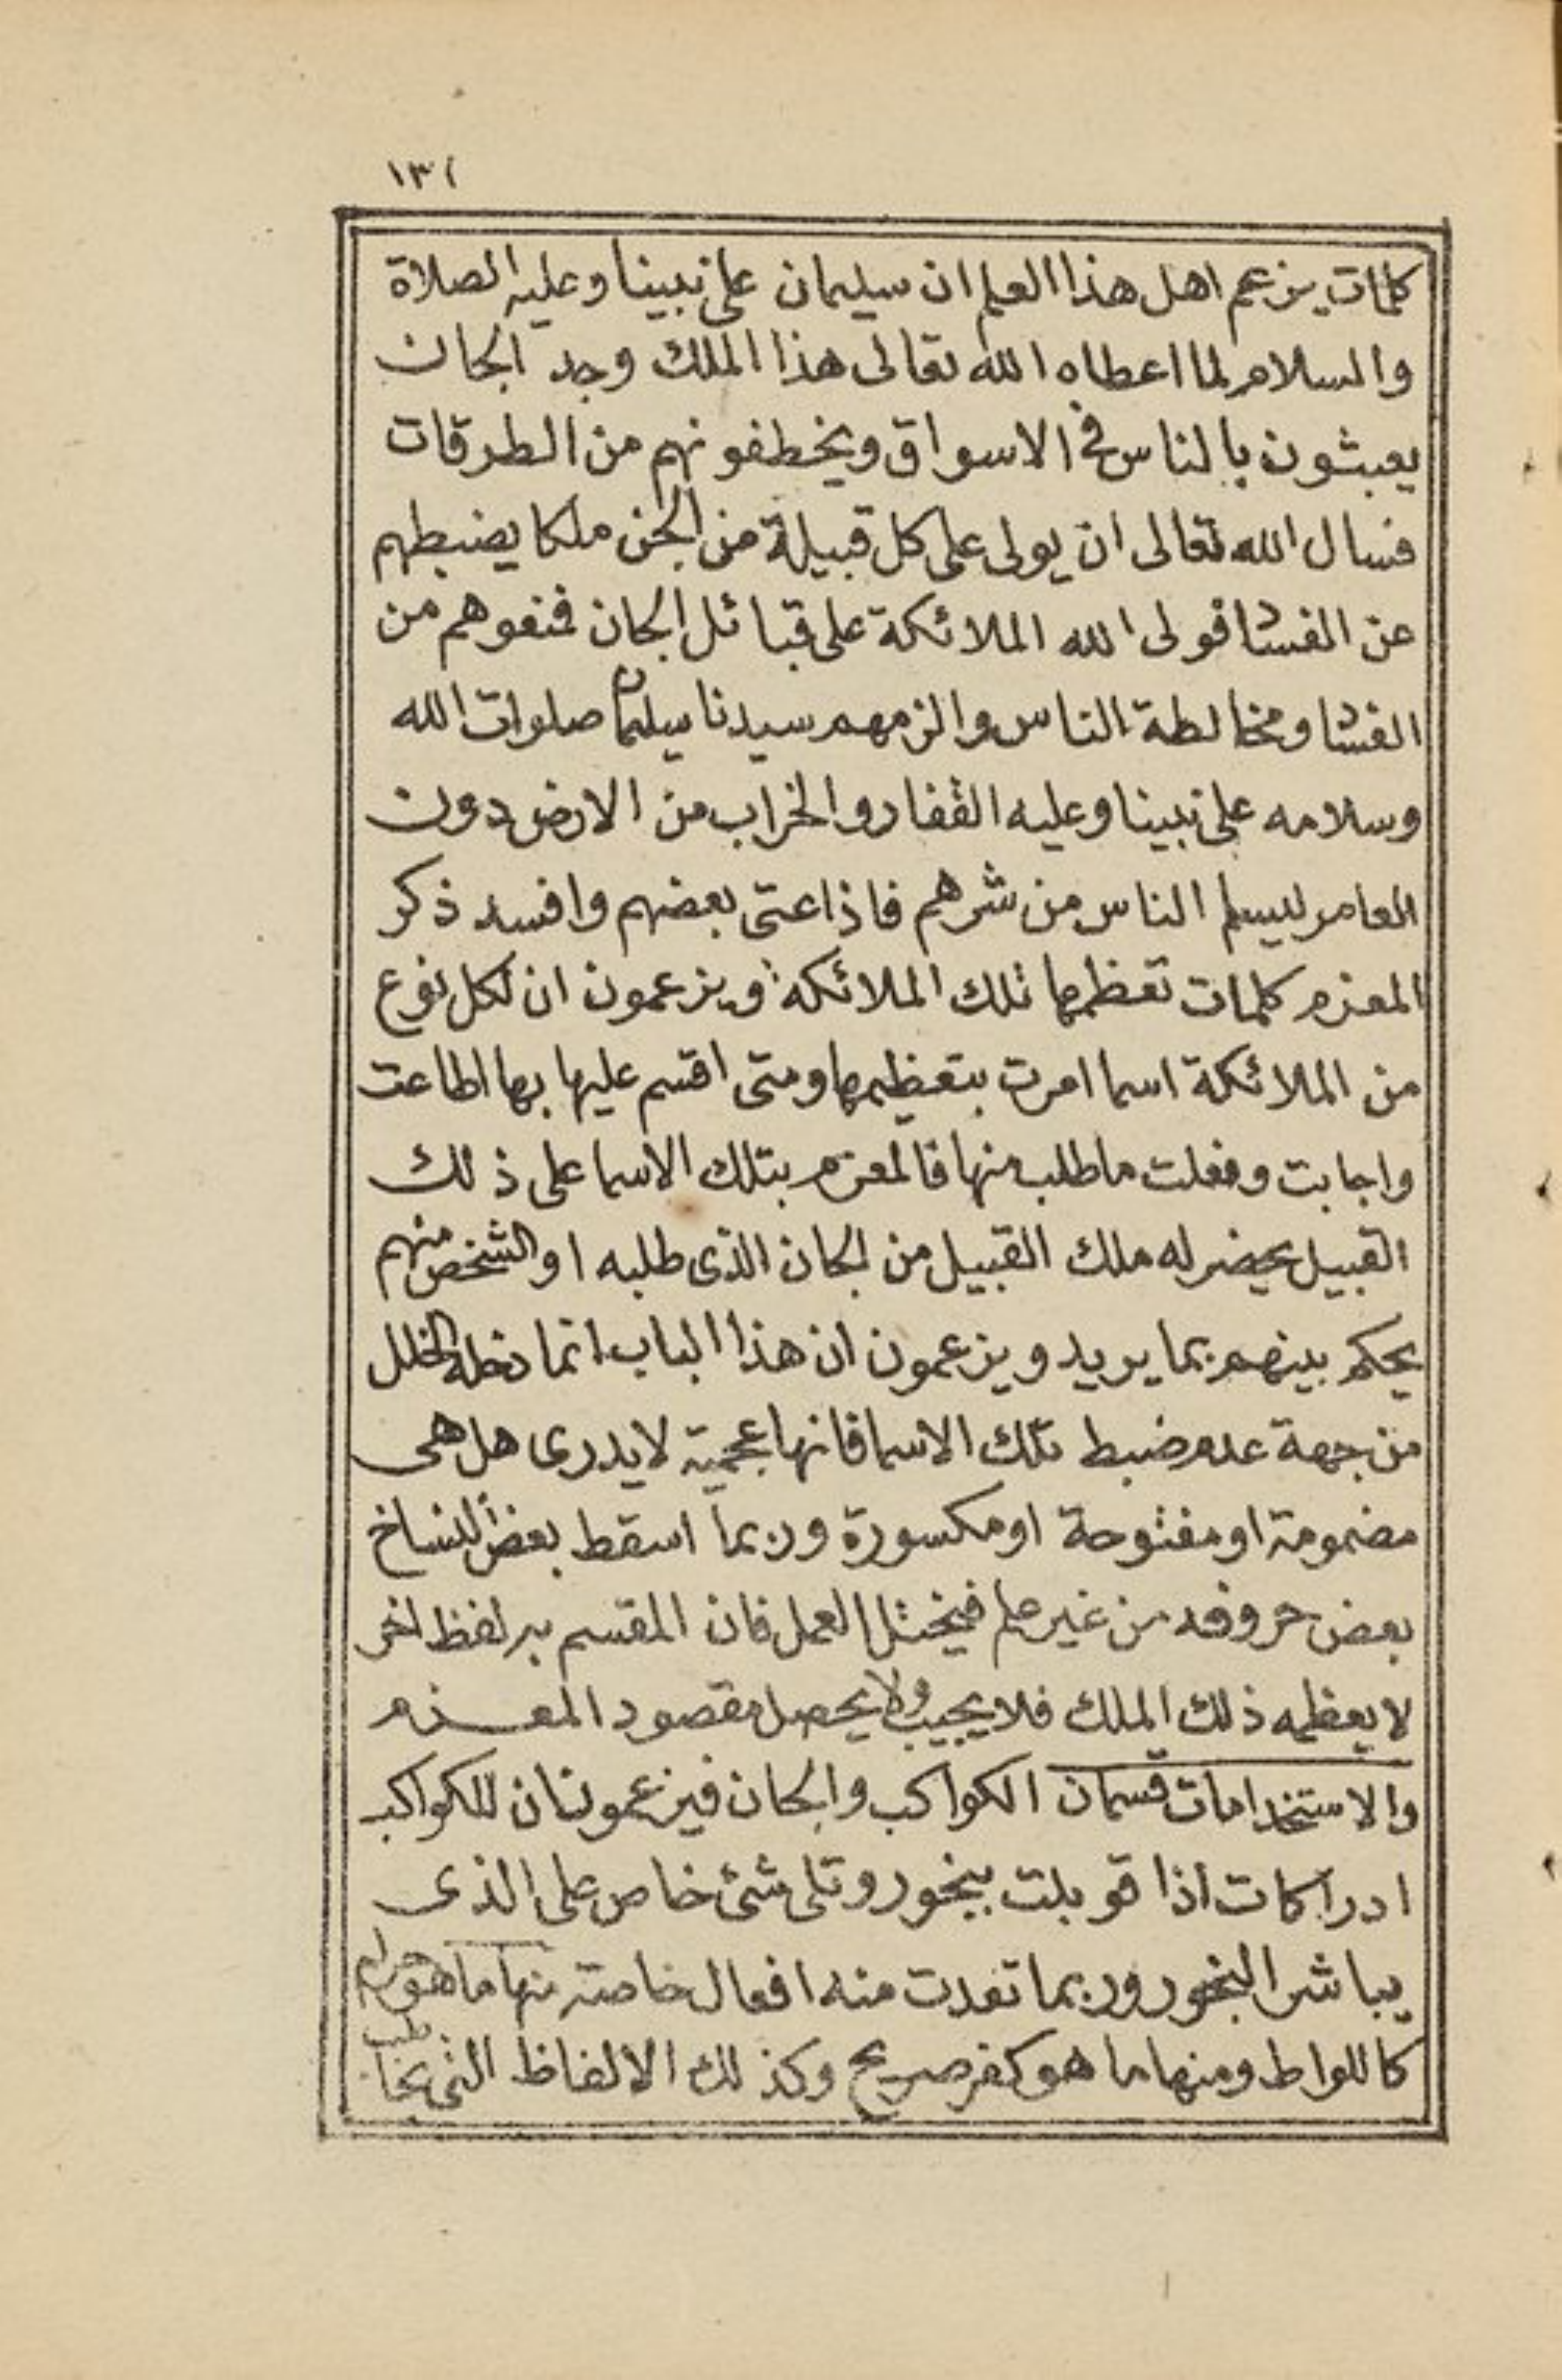 ١٣١
كلمات يزعم اهل هذا العلم ان سليمان على نبينا وعليه الصلاة
والسلام لما اعطاه الله تعالى هذا الملك وجد الجان
يعبثون بالناس في الاسواق ويخطفونهم من الطرقات
فسال الله تعالى ان يولى على كل قبيلة من الجن ملكا يضبطهم
عن الفساد فولى الله الملائكة على قبائل الجان فمنعوهم من
الفساد ومخالطة الناس والزمهم سيدنا سليمان صلوات الله
وسلامه على نبينا وعليه القفار والخراب من الارض دون
العامر ليسلم الناس من شرهم فاذا عتى بعضهم وافسد ذكر
المعزم كلمات تعظمها تلك الملائكة ويزعمون ان لكل نوع
من الملائكة اسما امرت بتعظيمها ومتى اقسم عليها بها اطاعت
واجابت وفعلت ما طلب منها فالمعزم بتلك الاسما على ذلك
القبيل يحضر له ملك القبيل من الجان الذى طلبه او الشخص منهم
يحكم بينهم بما يريد ويزعمون ان هذا الباب انما دخله الخلل
من جهة عدم ضبط تلك الاسما فانها عجمية لا يدرى هل هى
مضمومة او مفتوحة او مكسورة وربما اسقط بعض النساخ
بعض حروفه من غير علم فيختل العمل فان المقسم به لفظ اخر
لا يعظمه ذلك الملك فلا يجيب ولا يحصل مقصود المعزم
والاستخدامات قسمان الكواكب والجان فيزعمون ان للكواكب
ادراكات اذا قوبلت ببخور وتلى شئ خاص على الذى
يباشر البخور وربما تقدت منه افعال خاصة منها ما هو حرام
كاللواط ومنها ما هو كفر صريح وكذلك الالفاظ التى يخاطب